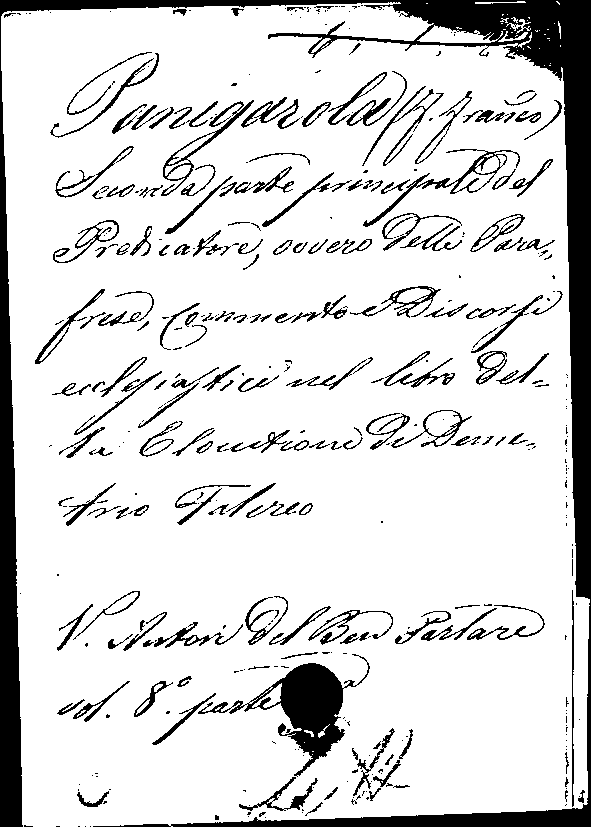 Panigarola (F. Franco)
Seconda parte principale del
Predicatore, ovvero delle Para-
frase, Commento e Discorsi
ecclesiastici nel libro del-
la Elocutione di Deme-
trio Falereo
V. Autori del Ben Parlare
vol. 8º. parte